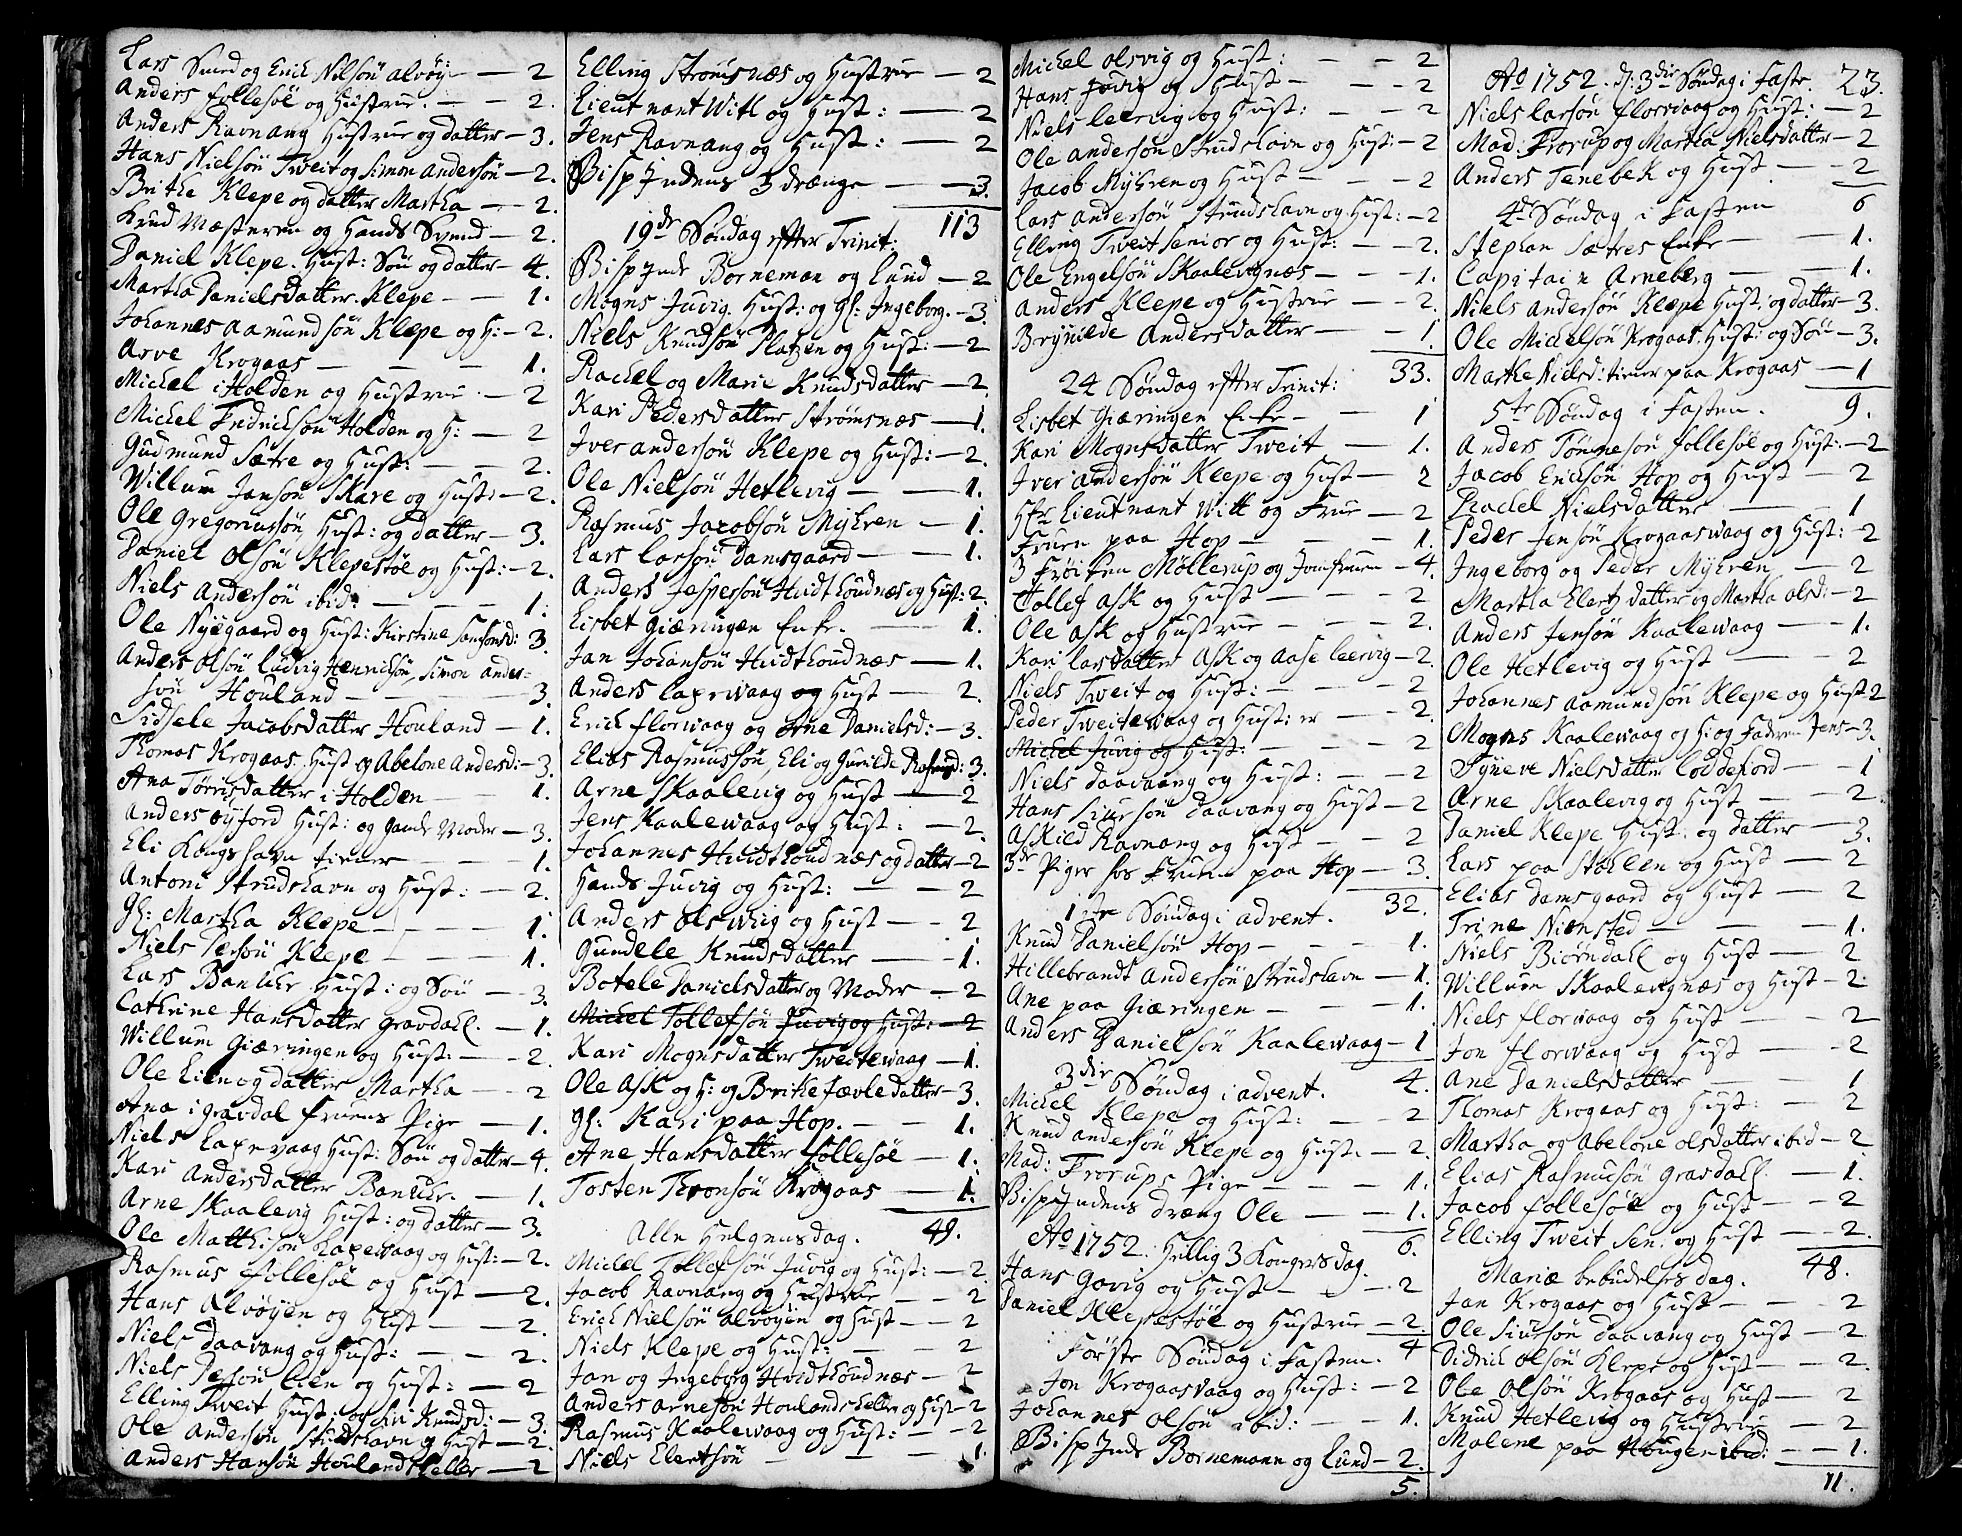 Lars Smed og Erich Nilsøn alvøy: — 2
Anders follesøe og Hustrue. — 2.
Anders Ravnang Hustrue og datter — 3.
Hans Nielsøn Tweit og Simon Andersøn — 2.
Brithe Klepe og datter Martha — 2.
Knud Mæsteren og Hands Svend — 2.
Daniel Klepe. Hust: Søn og datter — 4.
Martha Danielsdatter Klepe — 1.
Johannes Aamundsøn Klepe og H: — 2.
Arve Krogaas — 1.
Michel i Holden og Hustrue — 2
Michel Fredrichsøn Holden og H: — 2
Gudmund Sætre og Hust: — 2.
Willum Jansøn Skare og Hust: — 2.
Ole Gregoriussøn Hust: og datter — 3.
Daniel Olsøn Klepestøe og Hust: — 2.
Niels Andersøn ibid: — 1.
Ole Nygaard og Hust: Kirstine Samsonsd: 3.
Anders Olsøn Ludvig Henrichsøn, Simon Ander-
søn Houland — 3.
Sidsele Jacobsdatter Houland — 1.
Thomas Krogaas Hust og Abelone Andersd: — 3.
Ana Tørrisdatter i Holden — 1.
Anders øyjord Hust: og hands Moder — 3.
Eli Kongshavn tiener — 1.
Antoni Strudshavn og Hust: — 2.
Gl: Martha Klepe — 1.
Niels Persøn Klepe — 1.
Lars Banchr. Hust: og Søn — 3.
Cathrine Hansdatter Gravdahl. — 1.
Willum Giæringen og Hust: — 2.
Ole Lien og datter Martha — 2
Ana i gravdal Fruens Pige — 1.
Niels Laxevaag Hust: Søn og datter — 4.
Kari Andersdatter Banchr. — 1.
Arne Skaalevig Hust: og datter — 3.
Ole Matthisøn Laxevaag og Hust: — 2.
Rasmus follesøe og Hust — 2.
Hans Alvøyen og Hust — 2.
Niels daavang og Hust: — 2.
Niels Persøn Lien og Hust: — 2
Elling Tweit Hust: og Siri Knudsd: — 3.
Ole Andersøn Strudshavn og Hust — 2.
Anders Hansøn Houlandshelle — 2
Elling Strømsnæs og Hustrue — 2
Lieutnant Witt og Hust: — 2
Jens Ravnang og Hust: — 2
Bisp Jndens 3 drænge — 3.
113
19de Søndag efter Trinit:
Bisp Jnds Borneman og Lund — 2
Mogns Juvig. Hust: og Gl: Ingeborg. — 3.
Niels Knudsøn Platzen og Hust: — 2
Rachel og Marie Knudsdatter — 2.
Kari Pedersdatter Strømsnæs — 1.
Iver andersøn Klepe og Hust: — 2.
Ole Nielsøn Hetlevig — 1.
Rasmus Jacobsøn Myhren — 1.
Lars Larsøn Damsgaard — 1.
Anders Jespersøn Hvidthoudnæs og Hust: 2.
Lisbet Giæringen Enke. — 1.
Jan Johansøn Hvidthoudnæs — 1.
Anders Laxevaag og Hust — 2.
Erich florwaag og Ane Danielsd: — 3.
Elias Rasmussøn, Eli og Gunilde Rasmusd: 3.
Arne Skaalevig og Hust — 2
Jens Kaalewaag og Hust: — 2.
Johannes Hvidthoudnæs og datter — 2
Hands Juvig og Hust: — 2
Anders Olswiig og Hust — 2
Gundele Knudsdatter — 1.
Botele Danielsdatter og Moder — 2
Michel Tollefsøn Juvig og Hust: — 2
Kari Mognsdatter Tweitewaag — 1.
Ole Ask og H: og Brithe Jævledatter — 3.
Gl: Kari paa Hop. — 1.
Ane Hansdatter follesøe — 1.
Tosten Thronsøn Krogaas — 1.
49.
Alle Helgensdag.
Michel Tollefsøn Juvig og Hust: — 2.
Jacob Ravnang og Hustrue — 2
Erich Nielsøn alvøyen og Hust — 2
Niels Klepe og Hust: — 2
Jan og Ingeborg Hvidthoudnæs — 2
Anders Arnesøn Houlandshelle og Hust — 2
Rasmus Kaalewaag og Hust: — 2
Niels Elertsøn — 1.
Michel Olsvig og Hust: — 2
Hans Juvig og Hust — 2
Niels Leervig og Hust: — 2
Ole andersøn Strudshavn og Hust: — 2
Jacob Myhren og Hust — 2
Lars Andersøn Strudshavn og Hust: — 2
Elling Tweit Senior og Hust: — 2.
Ole Engelsøn Skaalevignæs — 1.
Anders Klepe og Hustrue — 2.
Brynilde Andersdatter — 1.
33.
24 Søndag efter Trinit:
Lisbet Giæringen Enke — 1
Kari Mognsdatter Tweit — 1.
Iver andersøn Klepe og Hust — 2
Hr Lieutnant Witt og Frue — 2
Fruen paa Hop — 1.
3 Frøiken Møllerup og Jomfruen — 4.
Tollef Ask og Hust — 2
Ole Ask og Hustrue — 2.
Kari Larsdatter Ask og Aase Leervig — 2.
Niels Tweit og Hust: — 2
Peder Tweitewaag og Hust: — 2.
Michel Juvig og Hust: — 2
Niels daavaang og Hust: — 2
Hans Siursøn daavang og Hust — 2
Askild Ravnang og Hust — 2
3de Piger hos Fruen paa Hop — 3.
32.
1ste Søndag i advent.
Knud Danielsøn Hop — 1.
Hillebrandt Andersøn Strudshavn — 1.
Ane paa Giæringen — 1.
Anders Danielsøn Kaalewaag — 1
4.
3die Søndag i advent.
Michel Klepe og Hust: — 2
Knud andersøn Klepe og Hust: — 2.
Mad: Frorups Pige — 1.
Bisp Jndens dræng Ole — 1.
6.
Ao 1752. Hellig 3 Kongersdag.
Hans Govig og Hust — 2
Daniel Klepestøe og Hustrue — 2.
4
Første Søndag i Fasten.
Jon Krogaasvaag og Hust: — 2
Johannes Olsøn ibid: — 1.
Bisp Jnds Bornemann og Lund — 2.
5.
Ao 1752. d: 3die Søndag i Faste. 23.
Niels Larsøn florvaag og Hust: — 2
Mad: Frorup og Martha Nielsdatter — 2
Anders Tenebek og Hust — 2
6
4de Søndag i Fasten
Stephan Sætres Enke — 1.
Capitain Arneberg — 1.
Niels Andersøn Klepe Hust: og datter — 3.
Ole Michelsøn Krogaas. Hust: og Søn — 3.
Marthe Nielsd: tiener paa Krogaas — 1
9.
5te Søndag i Fasten.
Anders Tønnesøn follesøe og Hust: — 2
Jacob Erichsøn Hop og Hust — 2
Rachel Nielsdatter — 1
Peder Jensøn Krogaaswaag og Hust: — 2
Ingeborg og Peder Myhren — 2
Martha Elertzdatter og Martha Olsd: — 2
Anders Jensøn Kaalewaag — 1.
Ole Hetlevig og Hust — 2
Johannes Aamundsøn Klepe og Hust 2
Mogns Kaalewaag og H: og Fadren Jens — 3.
Syneve Nielsdatter Loddefiord — 1
Arne Skaalevig og Hust — 2.
Daniel Klepe Hust: og datter — 3.
Lars paa Støhlen og Hust — 2
Elias Damsgaard og Hust — 2
Trine Niensted — 1.
Niels Biørndahl og Hust — 2
Willum Skaalevignæs og Hust — 2
Niels florvaag og Hust — 2
Jon florwaag og Hust — 2
Ane Danielsdatter — 1
Thomas Krogaas og Hust: — 2
Martha og Abelone Olsdatter ibid — 2
Elias Rasmusøn gravdahl. — 1.
Jacob follesøe og Hust — 2
Elling Tweit Sen: og Hust — 2.
48.
Mariæ bebudelses dag.
Jan Krogaas og Hust — 2
Ole Siursøn daavang og Hust — 2
Didrich Olsøn Klepe og Hust — 2.
Ole Olsøn Krogaas og Hust — 2
Knud Hetlevig og Hustrue — 2
Malene paa Hougen ibid: — 1.
11.